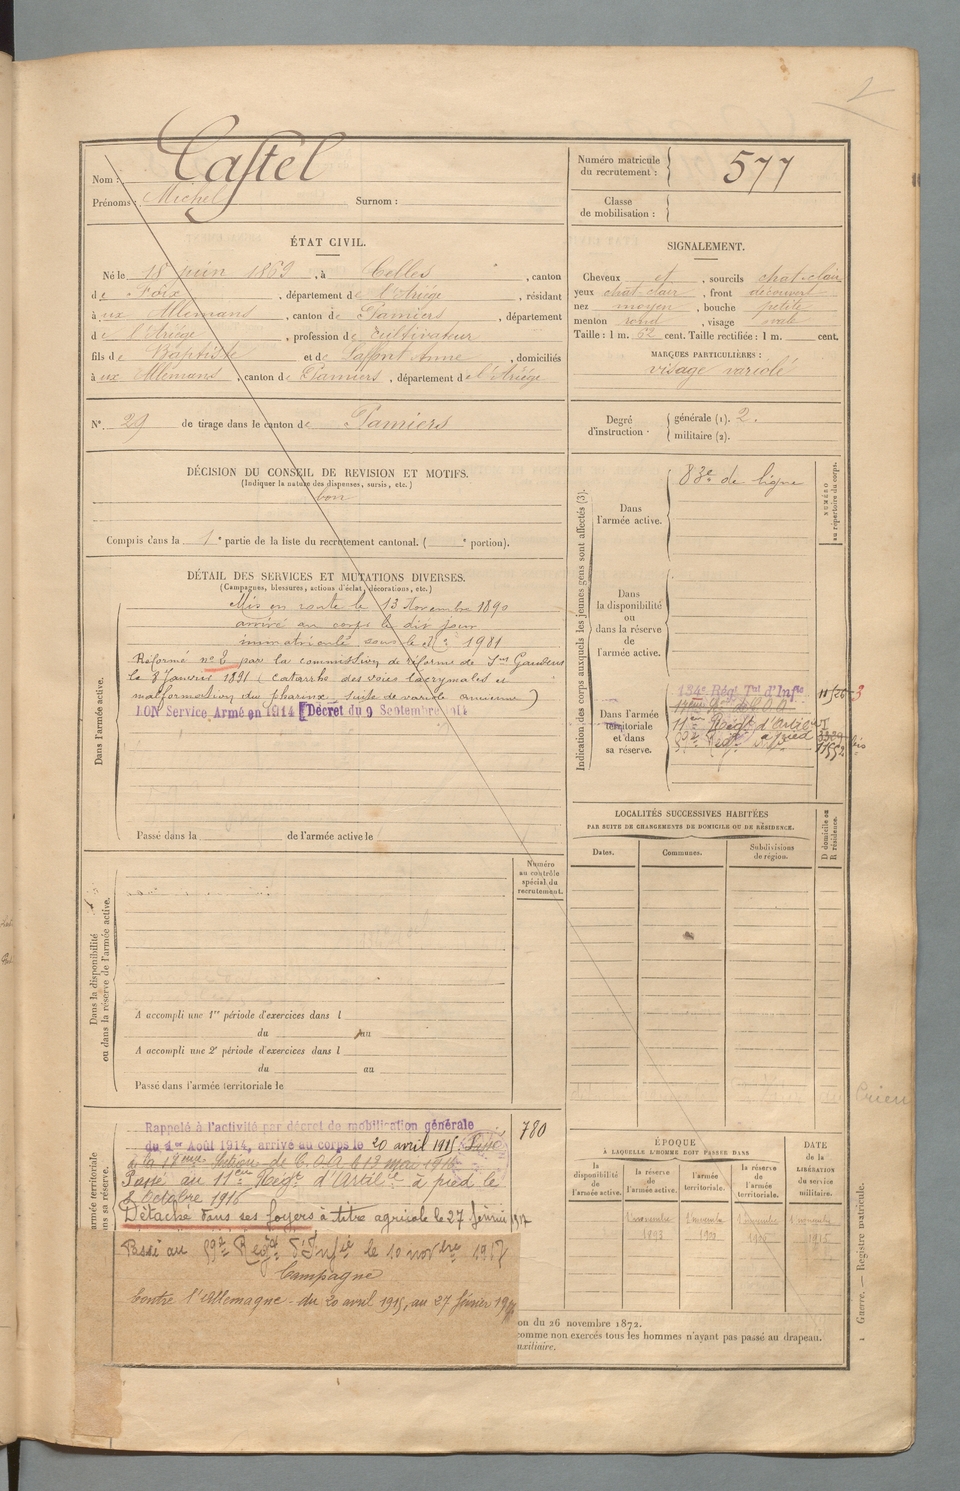 2
Nom : Castel
Prénoms : Michel Surnom :
Numéro matricule du recrutement : 577
Classe de mobilisation :
ÉTAT CIVIL.
Né le 18 juin 1869, à Celles, canton
de Foix, département de l'Ariège, résidant
à ux Allemans, canton de Pamiers, département
de l'Ariège, profession de Cultivateur
fils de Baptiste et de Lafont Anne, domiciliés
à ux Allemans, canton de Pamiers, département de l'Ariège
SIGNALEMENT.
Cheveux et, sourcils chat-clair
yeux chat-clair, front découvert
nez moyen, bouche petite
menton rond, visage ovale
Taille : 1 m. 62 cent. Taille rectifiée : 1 m. cent.
MARQUES PARTICULIÈRES :
visage variolé
N° 29 de tirage dans le canton de Pamiers
Degré d'instruction : générale (1). 2.
militaire (2).
DÉCISION DU CONSEIL DE REVISION ET MOTIFS.
(Indiquer la nature des dispenses, sursis, etc.)
bon
Compris dans la 1e partie de la liste du recrutement cantonal. ( e portion).
DÉTAIL DES SERVICES ET MUTATIONS DIVERSES.
(Campagnes, blessures, actions d'éclat, décorations, etc.)
Dans l'armée active.
Mis en route le 13 Novembre 1890
arrivé au corps le dit jour
immatriculé sous le n° 1981
Réformé n° 2 par la commission de réforme de St Gaudens
le 8 Janvier 1891 (catarrhe des voies lacrymales et
malformation du pharinx, suite de variole ancienne)
BON Service Armé en 1914 [Décret du 9 Septembre 1914
Passé dans la de l'armée active le
Indication des corps auxquels les jeunes gens sont affectés (3).
NUMÉRO au répertoire du corps.
Dans l'armée active.
83e de ligne
Dans la disponibilité ou dans la réserve de l'armée active.
Dans l'armée territoriale et dans sa réserve.
134e Régt Tal d'Inftie
17ème Son de C.O.A
11em Régt d'Artie à pied
LOCALITÉS SUCCESSIVES HABITÉES
PAR SUITE DE CHANGEMENTS DE DOMICILE OU DE RÉSIDENCE.
Dates. Communes. Subdivisions de région.
D domicile ou R résidence.
Numéro au contrôle spécial du recrutement.
Dans la disponibilité ou dans la réserve de l'armée active.
A accompli une 1re période d'exercices dans l
du au
A accompli une 2e période d'exercices dans l
du au
Passé dans l'armée territoriale le
armée territoriale
ns sa réserve.
Rappelé à l'activité par décret de mobilisation générale
du 1er Août 1914, arrive au corps le 20 avril 1915. Passé
780
Passé au 11em Régt d'Artilie à pied le
8 Octobre 1916
Détaché dans ses foyers à titre agricole le 27 février 1917
Passé au Régt d'Infie le 10 novbre 1917
Campagne
contre l'Allemagne - du 20 avril 1915, au 27 février 19
ÉPOQUE
À LAQUELLE L'HOMME DOIT PASSER DANS
la disponibilité de l'armée active.
la réserve de l'armée active.
l'armée territoriale.
la réserve de l'armée territoriale.
DATE de la LIBÉRATION du service militaire.
1er novembre 1893
1er novembre
1er novembre
1er novembre 1915
on du 26 novembre 1872.
comme non exercés tous les hommes n'ayant pas passé au drapeau.
uxiliaire.
1 Guerre. — Registre matricule.